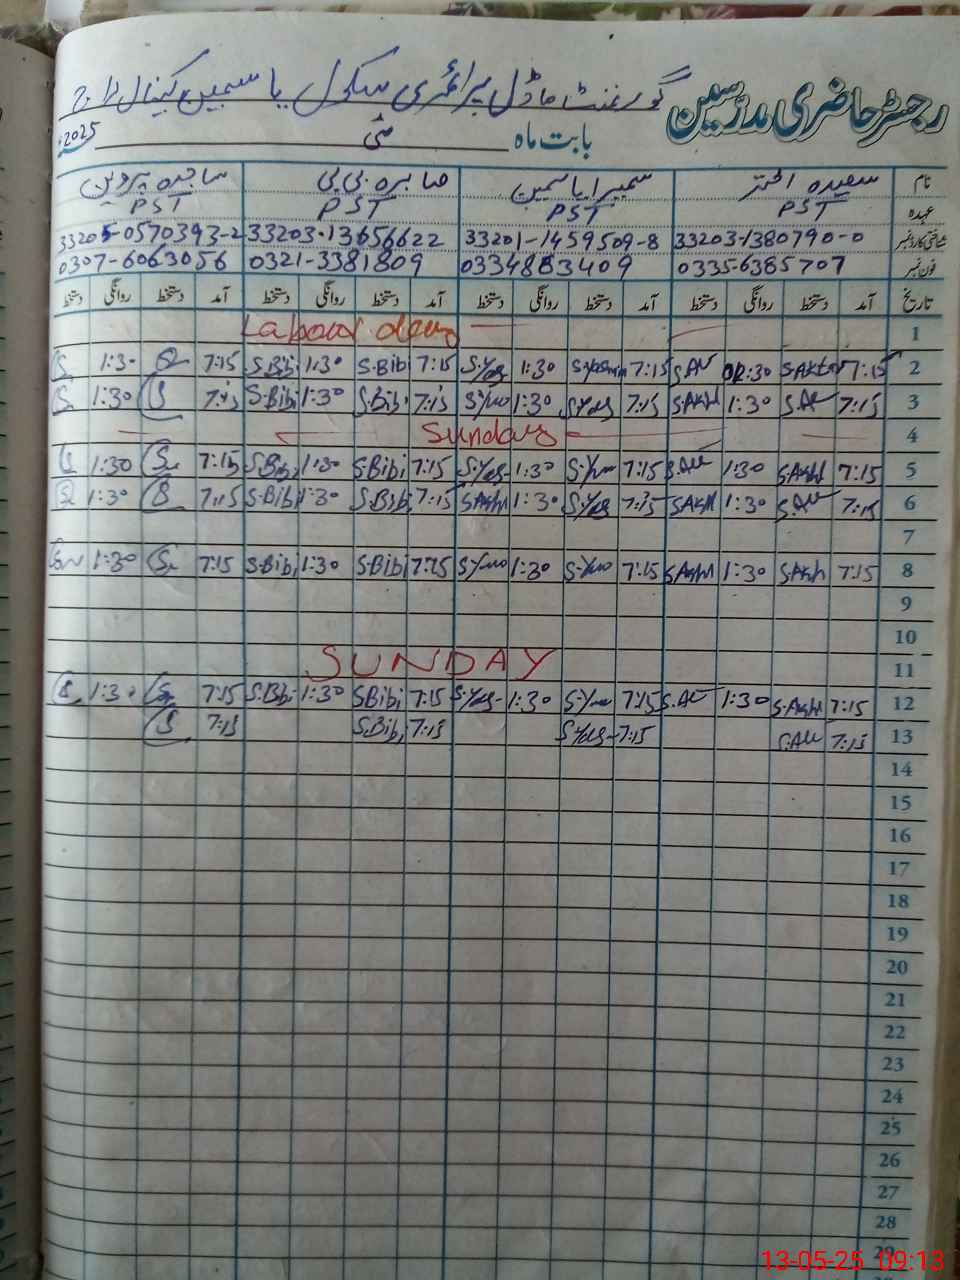 رجسٹر حاضری مدرسین گورنمنٹ ماڈل پرائمری سکول یاسمین کینال لاج
بابت ماہ مئی 2025ء
نام سعیدہ اختر سمیرا یاسمین صابرہ بی بی ساجدہ پروین
عہدہ PST PST PST PST
شناختی کارڈ نمبر 33203-1380790-0 33201-1459509-8 33203-13656622 33205-0570393-2
فون نمبر 0335-6385707 0334883409 0321-3381809 0307-6063056
تاریخ آمد دستخط روانگی دستخط آمد دستخط روانگی دستخط آمد دستخط روانگی دستخط آمد دستخط روانگی دستخط
1 Labour day
2 7:15 S.Akhtar 02:30 S.AK 7:15 S.Yasmin 1:30 S.Yas 7:15 S.Bibi 1:30 S.Bibi 7:15 1:30
3 7:15 S.AK 1:30 S.AKH 7:15 S.Yas 1:30 7:15 S.Bibi 1:30 S.Bibi 7:15 S 1:30
4 Sunday
5 7:15 S.AKH 1:30 S.AK 7:15 1:30 S.Yas 7:15 S.Bibi 1:30 S.Bibi 7:15 1:30
6 7:15 S.AK 1:30 S.AKH 7:15 S.Yas 1:30 S.AKH 7:15 S.Bibi 1:30 S.Bibi 7:15 1:30
7
8 7:15 S.AKH 1:30 S.AKH 7:15 1:30 7:15 S.Bibi 1:30 S.Bibi 7:15 1:30
9
10
11 SUNDAY
12 7:15 S.AKH 1:30 S.AK 7:15 1:30 S.Yas 7:15 S.Bibi 1:30 S.Bibi 7:15 1:30
13 7:15 S.AK 7:15 S.Yas 7:15 S.Bibi 7:15 S
14
15
16
17
18
19
20
21
22
23
24
25
26
27
28
29
13-05-25 09:13